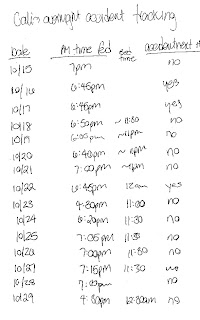 Cali's overnight accident tracking
Date PM time fed end time accident
10/15 7pm no
10/16 6:45pm yes
10/17 6:45pm yes
10/18 6:50pm ~ 11:30 no
10/19 6:00pm no
10/20 6:40pm no
10/21 7:00pm no
10/22 6:45pm 12am yes
10/23 11:00 no
10/24 6:20pm 11:30 no
10/25 7:05pm 11:30 no
10/26 7:00pm 11:30 no
10/27 7:15pm 11:30
10/28 no
10/29 12:30am no